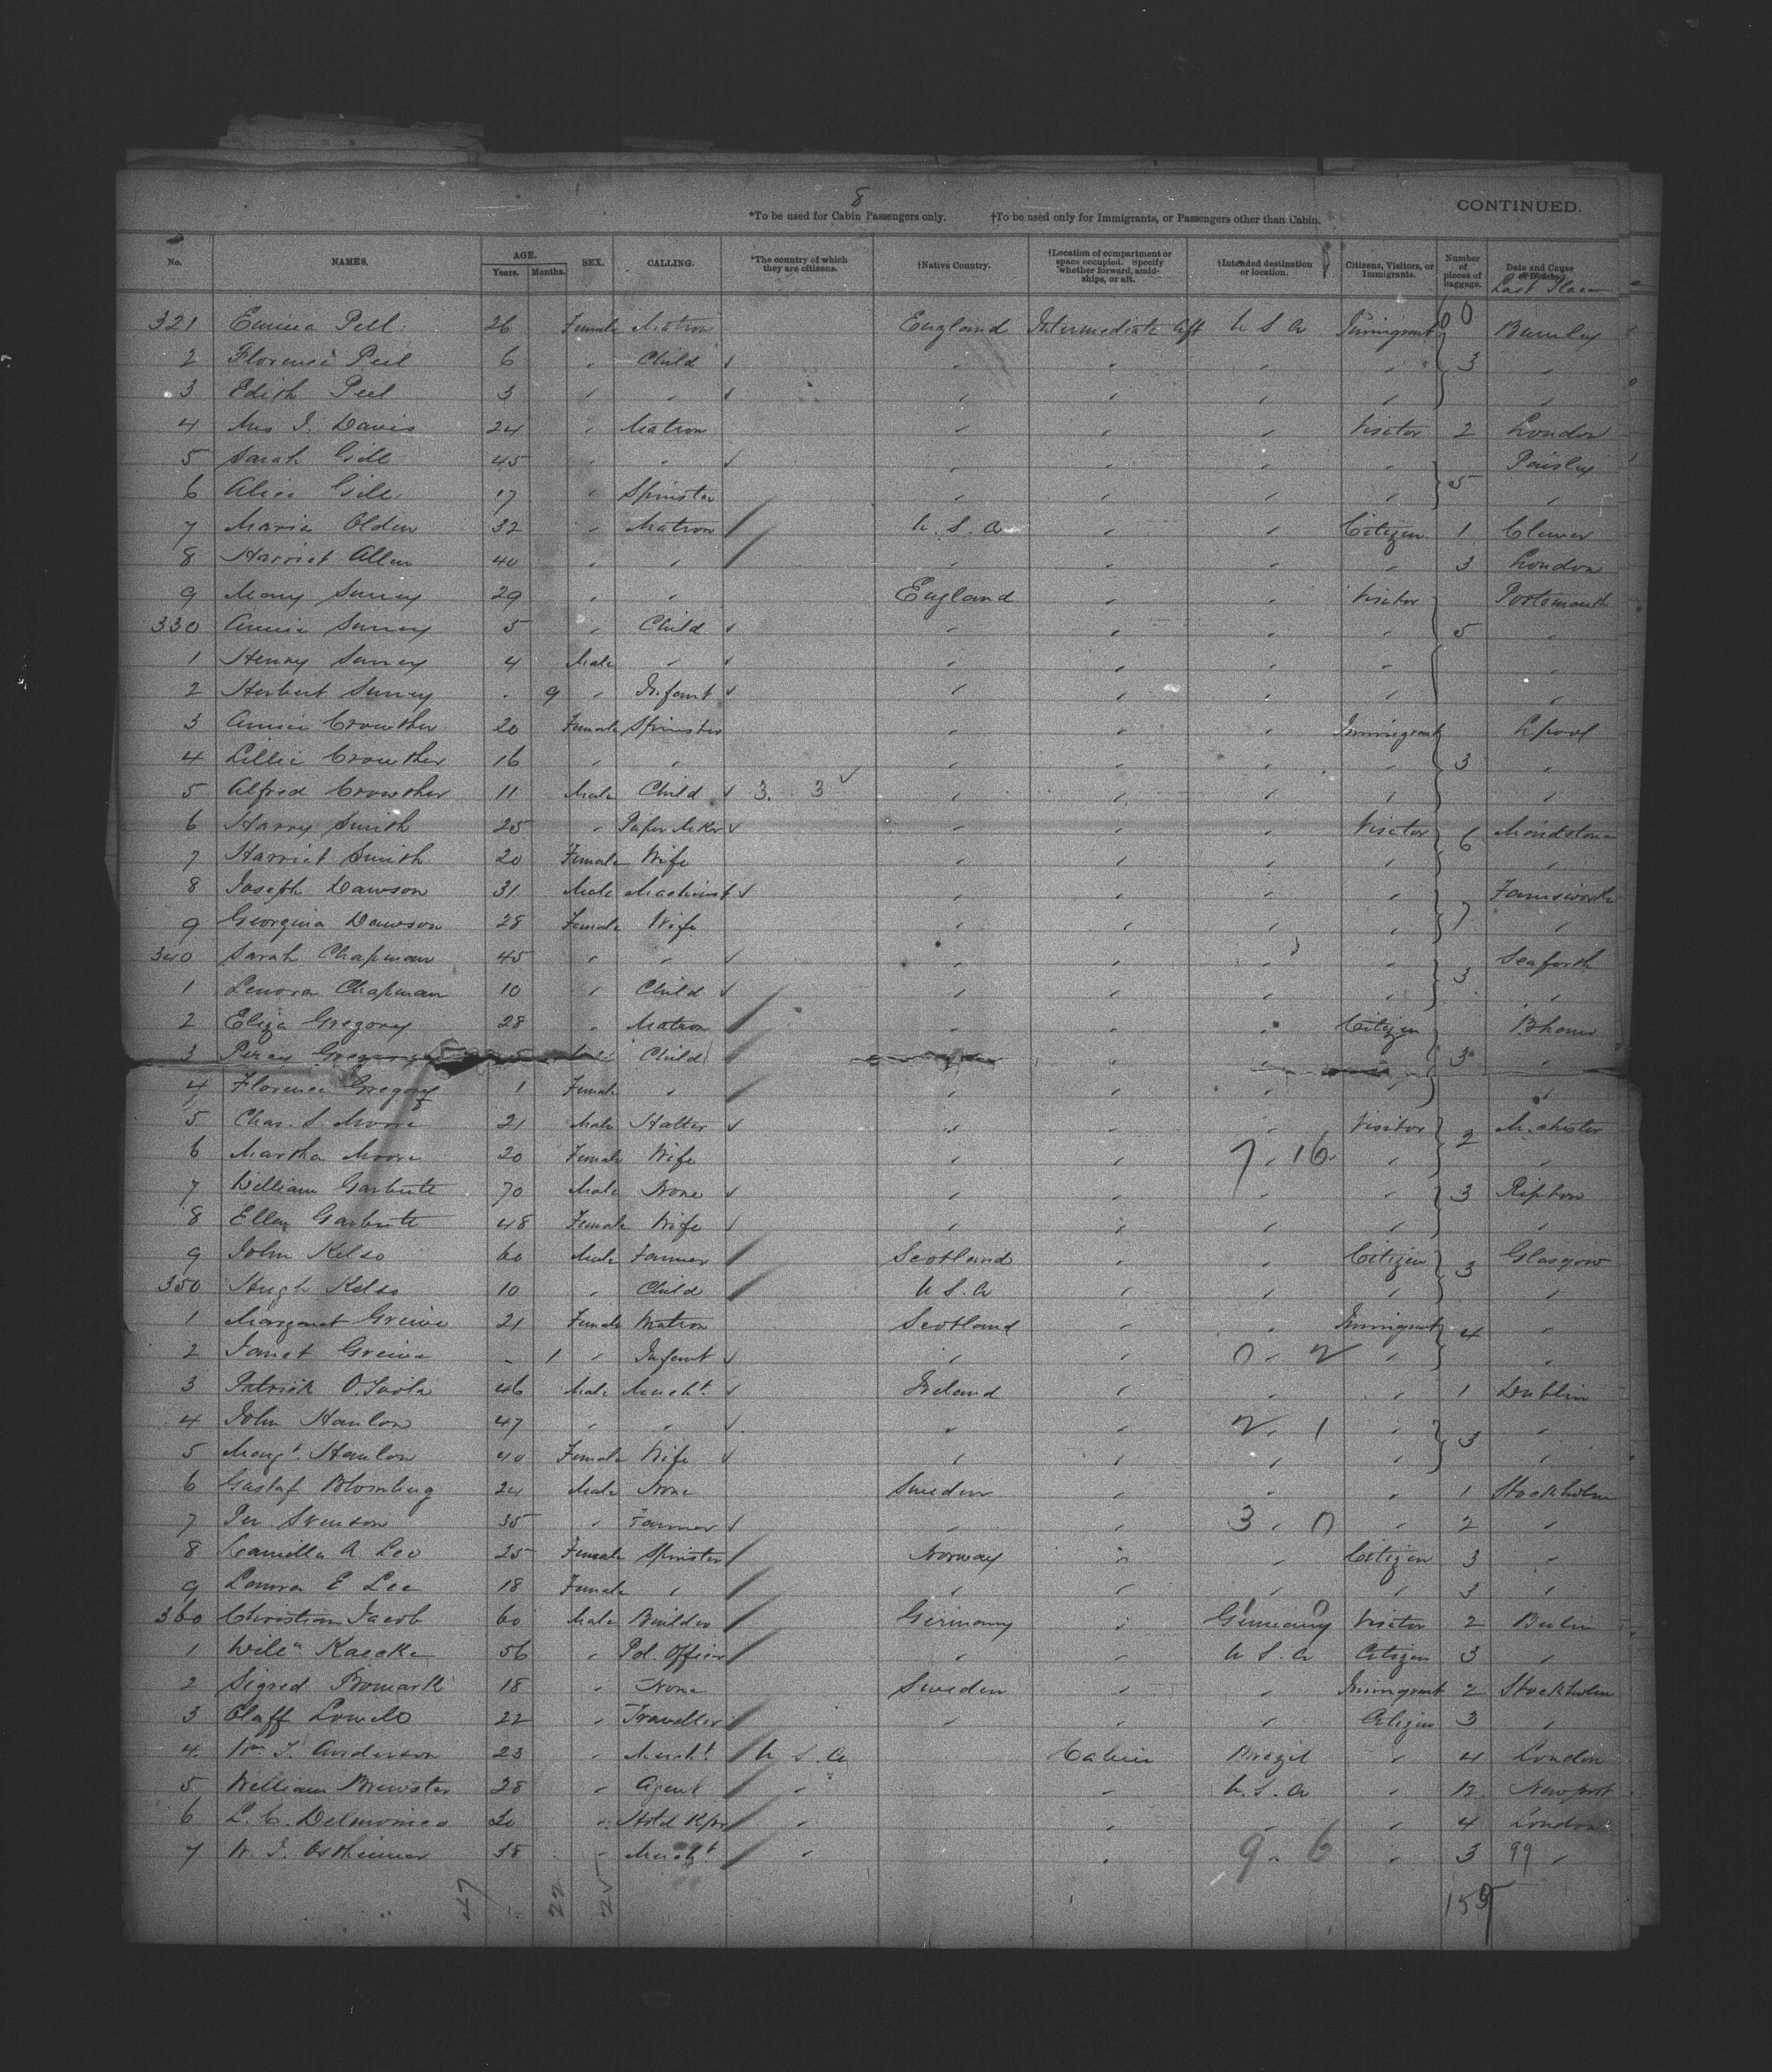 8
*To be used for Cabin Passengers only. †To be used only for Immigrants, or Passengers other than Cabin.
CONTINUED.
No. NAMES. AGE. Years. Months. SEX. CALLING. *The country of which they are citizens. †Native Country. †Location of compartment or space occupied. Specify whether forward, amidships, or aft. †Intended destination or location. Citizens, Visitors, or Immigrants. Number of pieces of baggage. Date and Cause
Last Place
321 Emma Peel 26 Female Matron England Intermediate Aft U S A Immigrant Burnley
2 Florence Peel 6 " Child " " " " 3 "
3 Edith Peel 3 " " " " " " "
4 Mrs J. Davis 24 " Matron " " " Visitor 2 London
5 Sarah Gill 45 " " " " " " Paisley
6 Alice Gill 17 " Spinster " " " " 5 "
7 Maria Olden 32 " Matron U. S. A " " Citizen 1 Clewer
8 Harriet Allen 40 " " " " " " 3 London
9 Mary Surrey 29 " " England " " Visitor Portsmouth
330 Annie Surrey 5 " Child " " " " 5 "
1 Henry Surrey 4 Male " " " " " "
2 Herbert Surrey 9 " Infant " " " " "
3 Annie Crowther 20 Female Spinster " " " Immigrant Lpool
4 Lillie Crowther 16 " " " " " " 3 "
5 Alfred Crowther 11 Male Child 3. 3 " " " " "
6 Harry Smith 25 " Paper Mker " " " Visitor 6 Maidstone
7 Harriet Smith 20 Female Wife " " " " "
8 Joseph Dawson 31 Male Machinist " " " " Farnsworth
9 Georgina Dawson 28 Female Wife " " " " 7 "
340 Sarah Chapman 45 " " " " " " Seaforth
1 Lenora Chapman 10 " Child " " " " 3 "
2 Eliza Gregory 28 " Matron " " " Citizen Bham
3 Percy Gregory Child " " " 3 "
4 Florence Gregory 1 Female " " " " " "
5 Chas. S. Moore 21 Male Hatter " " " Visitor M.chester
6 Martha Moore 20 Female Wife " " 7 . 16 " 2 "
7 William Garbutt 70 Male None " " " " 3 Ripton
8 Ellen Garbutt 48 Female Wife " " " " "
9 John Kelso 60 Male Farmer Scotland " " Citizen 3 Glasgow
350 Hugh Kelso 10 " Child U S. A " " " "
1 Margaret Greive 21 Female Matron Scotland " " Immigrant 4 "
2 Janet Greive 1 " Infant " " 0 . 2 " "
3 Patrick 46 Male Mercht. Ireland " " " 1 Dublin
4 John Hanlon 47 " " " " 2 . 1 " "
5 Margt. Hanlon 40 Female Wife " " " " 3 "
6 Gustaf Blomberg 24 Male None Sweden " " " 1 Stockholm
7 Per Svenson 35 " Farmer " " 3 . 0 " 2 "
8 Camilla A Lee 25 Female Spinster Norway " " Citizen 3 "
9 Laura E Lee 18 Female " " " " " 3 "
360 Christian Jacob 60 Male Builder Germany " Germany Visitor 2 Berlin
1 Willm. Kaecke 56 " Pol. Officer " " U S. A Citizen 3 "
2 Sigrid 18 " None Sweden " " Immigrant 2 Stockholm
3 Olaff 22 " Traveller " " " Citizen 3 "
4 Wm J. Anderson 23 " Mercht U S. A Cabin Brazil " 4 London
5 William Brewster 28 " Agent " " U. S. A " 12 Newport
6 L. C. Delmonico 30 " Hotel Kpr " " " " 4 London
7 38 " Mercht " " 9 . 6 " 3 99 "
47 22 25 159